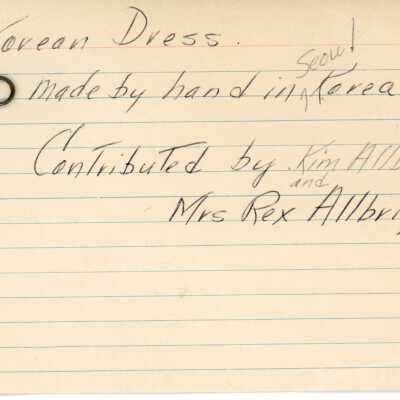 Korean Dress.
made by hand in Seoul Korea
Contributed by Kim Allb
and
Mrs Rex Allbri